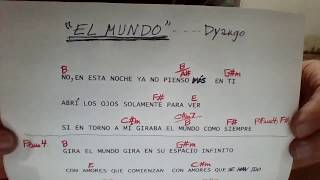 "EL MUNDO" ---- Dyango
B B/A# G#m
NO, EN ESTA NOCHE YA NO PIENSO MÁS EN TI
F# E
ABRÍ LOS OJOS SOLAMENTE PARA VER
C#m C#m/B F# F#sus4 F#
SI EN TORNO A MÍ GIRABA EL MUNDO COMO SIEMPRE
F#sus4 B C#m
GIRA EL MUNDO GIRA EN SU ESPACIO INFINITO
E C#m
CON AMORES QUE COMIENZAN CON AMORES QUE SE HAN IDO